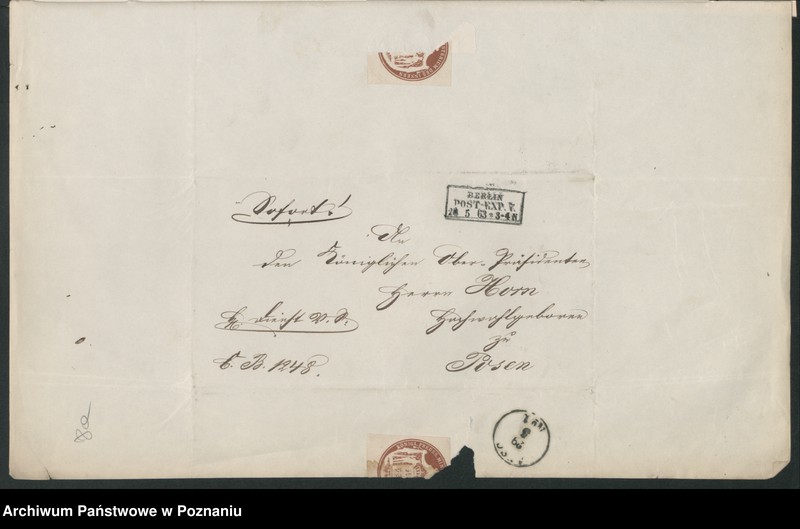 Sofort!
BERLIN
POST-EXP. 7.
5 63 3-4 N
An
den Königlichen Ober-Präsidenten
Herrn Horn
Hochwohlgeboren
zu
Posen
Dienst
C. B. 1248.
82
Archiwum Państwowe w Poznaniu